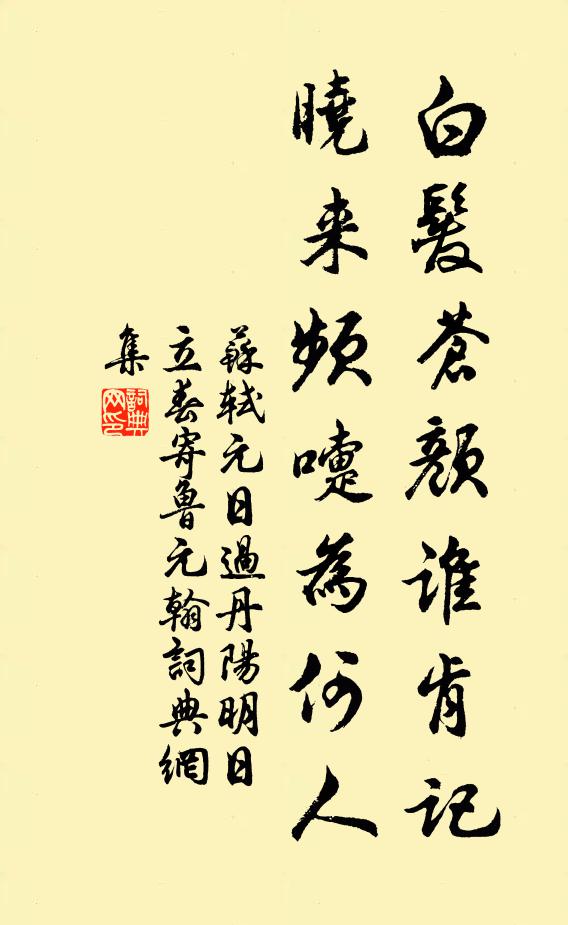 白髮蒼顏誰肯記
曉来頻嚏為何人
蘇軾元日過丹陽明日
立春寄魯元翰詞典網
集
詞典
网印